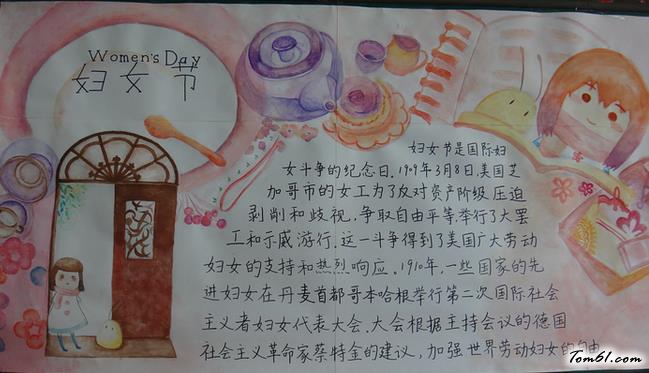 Women's Day
妇女节
妇女节是国际妇
女斗争的纪念日.1909年3月8日,美国芝
加哥市的女工为了反对资产阶级压迫
剥削和歧视,争取自由平等,举行了大罢
工和示威游行.这一斗争得到了美国广大劳动
妇女的支持和热烈响应.1910年,一些国家的先
进妇女在丹麦首都哥本哈根举行第二次国际社会
主义者妇女代表大会.大会根据主持会议的德国
社会主义革命家蔡特金的建议,加强世界劳动妇女的自由
Tom61.com